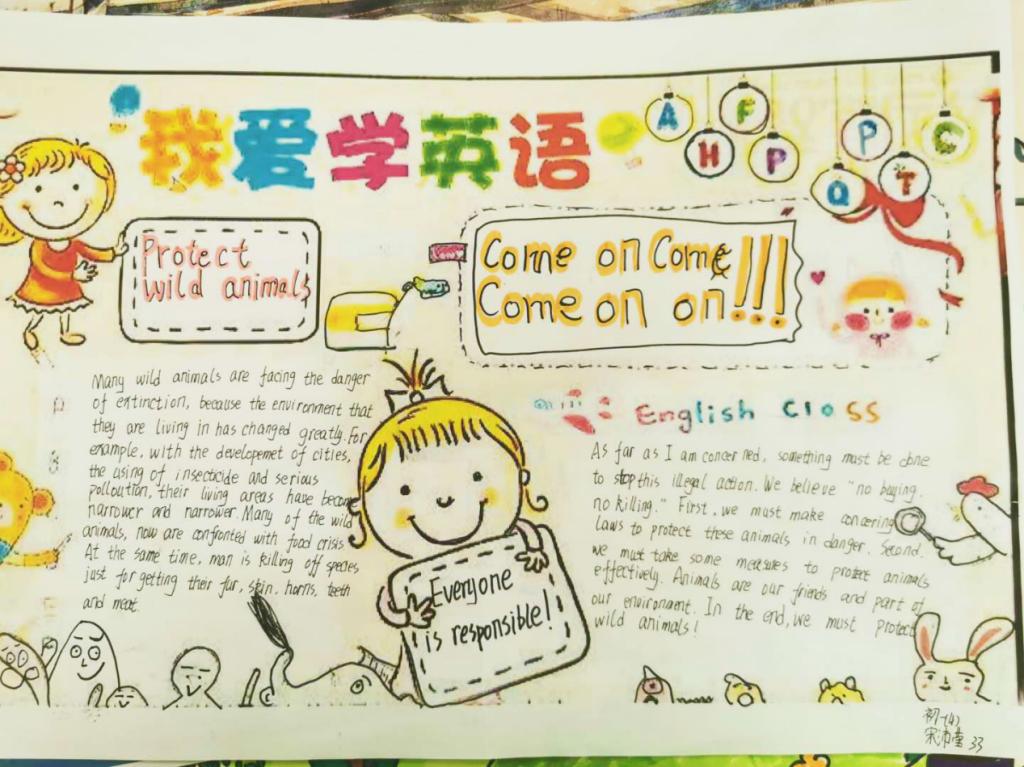 我爱学英语
A
F
H
P
P
C
Q
T
Protect
wild animals
Come on Come
Come on on !!!
Many wild animals are facing the danger
of extinction, because the environment that
they are living in has changed greatly. For
example, with the developemet of cities,
the using of insecticide and serious
polloution, their living areas have become
narrower and narrower. Many of the wild
animals, now are confronted with food crisis
At the same time, man is killing off species
just for getting their fur, skin, horns, teeth
and meat.
Everyone
is responsible!
English Closs
As far as I am concerned, something must be done
to stop this illegal action. We believe "no buying.
no killing." First, we must make concering
laws to protect these animals in danger. Second.
we must take some measures to protect animals
effectively. Animals are our friends and part of
our environment. In the end, we must protect
wild animals!
33